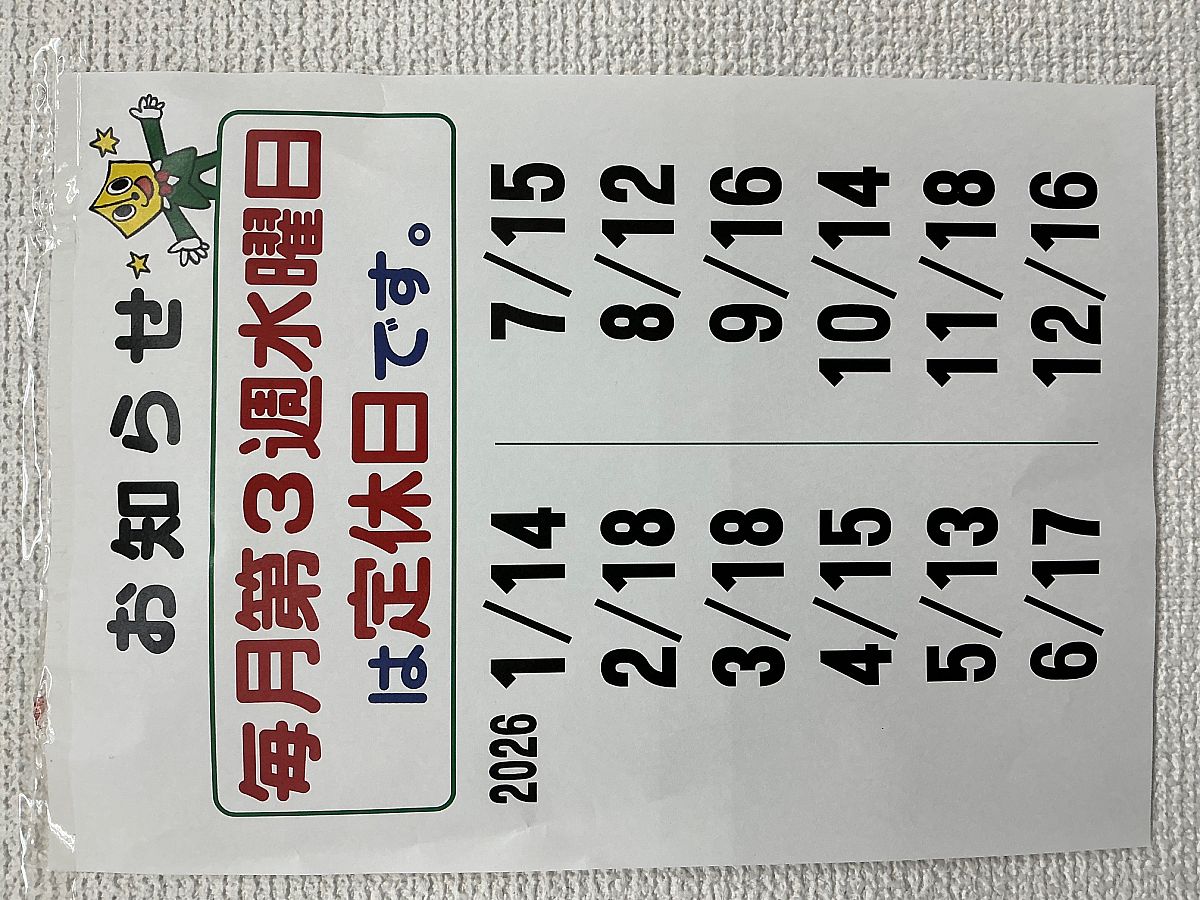 お知らせ
毎月第3週水曜日
は定休日です。
2026 1/14 7/15
2/18 8/12
3/18 9/16
4/15 10/14
5/13 11/18
6/17 12/16